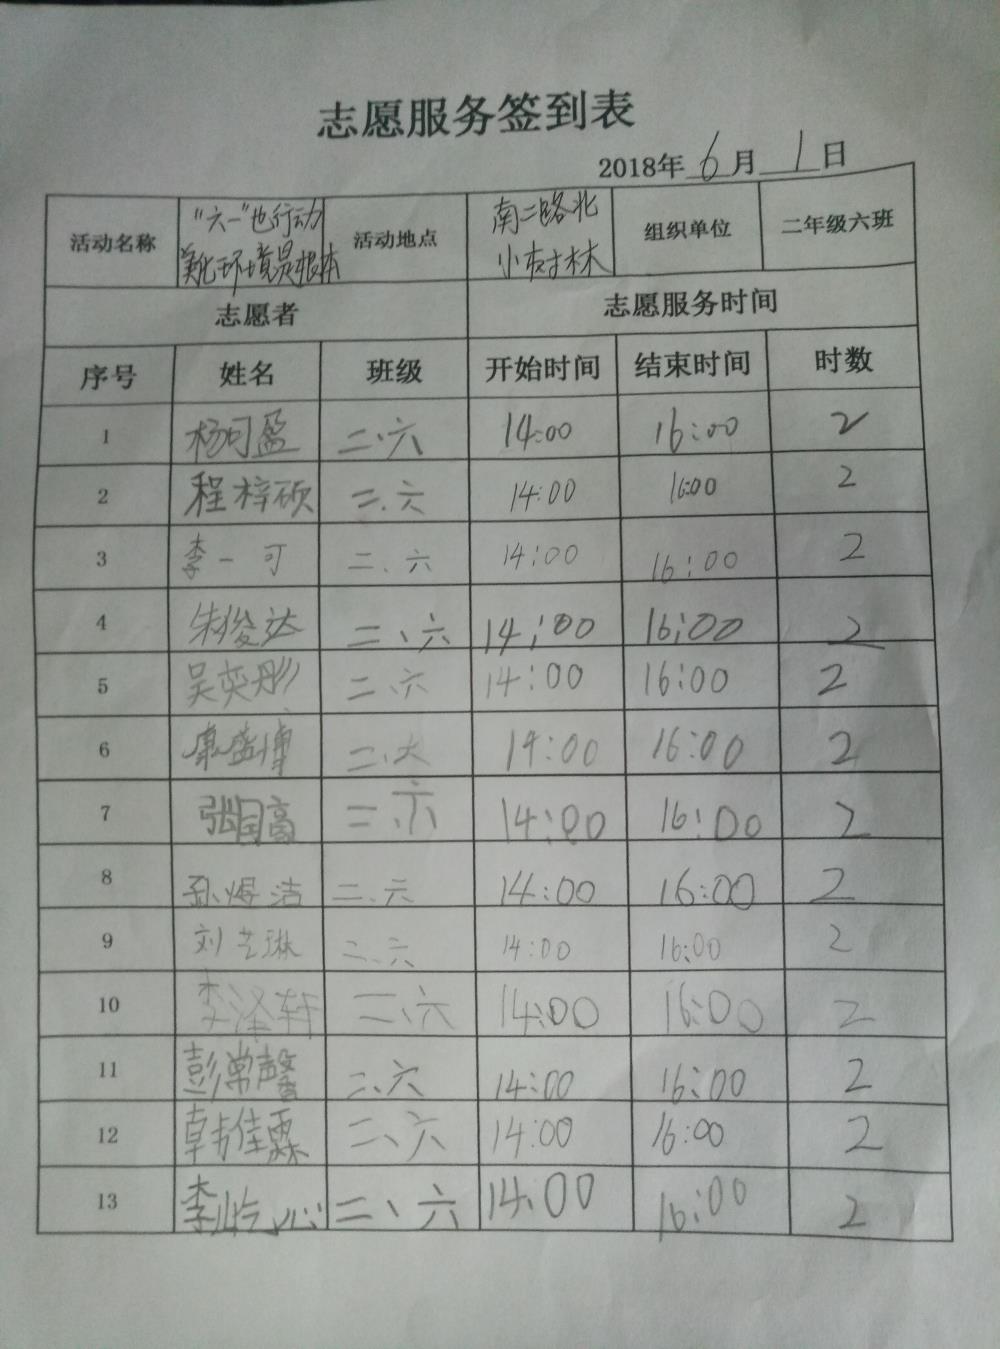 志愿服务签到表
2018年 6 月 1 日
活动名称 "六一"也行动 美化环境是根本 活动地点 南二路北 小树林 组织单位 二年级六班
志愿者 志愿服务时间
序号 姓名 班级 开始时间 结束时间 时数
1 杨可盈 二、六 14:00 16:00 2
2 程梓硕 二、六 14:00 16:00 2
3 李一可 二、六 14:00 16:00 2
4 朱俊达 二、六 14:00 16:00 2
5 吴奕彤 二、六 14:00 16:00 2
6 康盛博 二、六 14:00 16:00 2
7 张国高 二、六 14:00 16:00 2
8 孙煜洁 二、六 14:00 16:00 2
9 刘艺琳 二、六 14:00 16:00 2
10 李泽轩 二、六 14:00 16:00 2
11 彭常馨 二、六 14:00 16:00 2
12 韩佳霖 二、六 14:00 16:00 2
13 李屹心 二、六 14:00 16:00 2